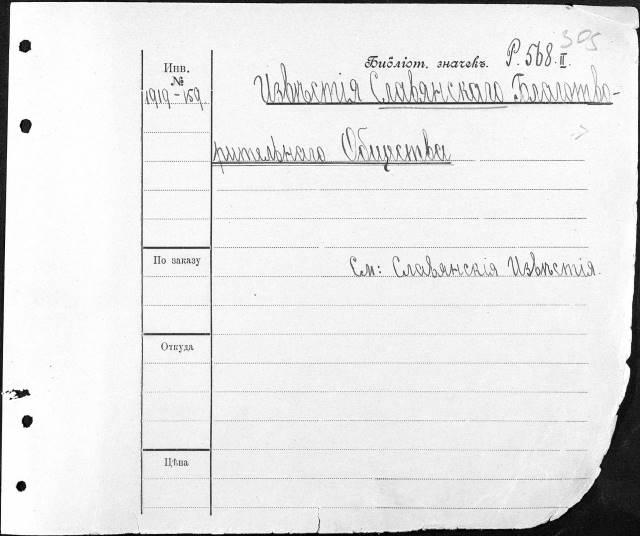 305
Инв. № Библіот. значекъ. Р. 568. II.
1919-159. Извѣстія Славянскаго Благотво-
рительнаго Общества
По заказу См: Славянскія Извѣстія.
Откуда
Цѣна